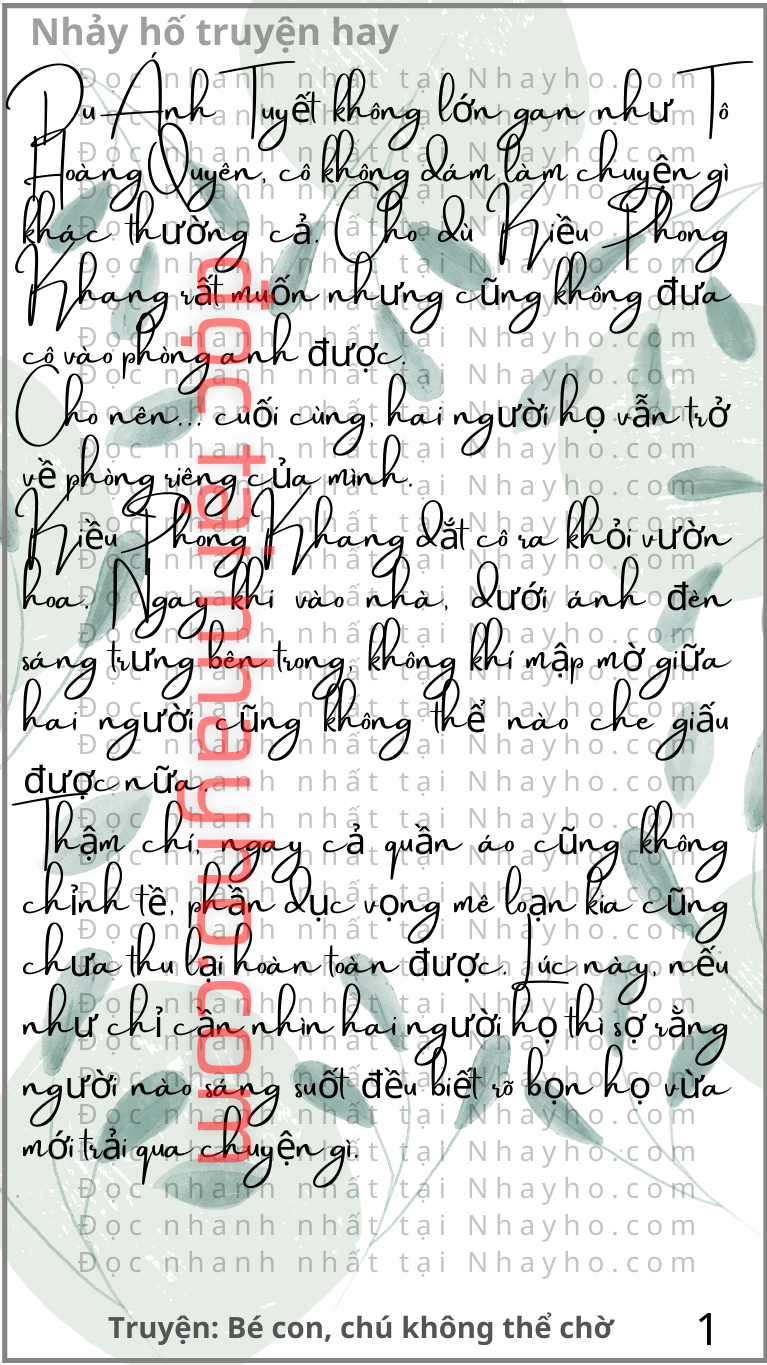 Nhảy hố truyện hay
Du Ánh Tuyết không lớn gan như Tô
Hoàng Quyên, cô không dám làm chuyện gì
khác thường cả. Cho dù Kiều Phong
Khang rất muốn nhưng cũng không đưa
cô vào phòng anh được.
Cho nên... cuối cùng, hai người họ vẫn trở
về phòng riêng của mình.
Kiều Phong Khang dắt cô ra khỏi vườn
hoa. Ngay khi vào nhà, dưới ánh đèn
sáng trưng bên trong, không khí mập mờ giữa
hai người cũng không thể nào che giấu
được nữa.
Thậm chí, ngay cả quần áo cũng không
chỉnh tề, phần dục vọng mê loạn kia cũng
chưa thu lại hoàn toàn được. Lúc này, nếu
như chỉ cần nhìn hai người họ thì sợ rằng
người nào sáng suốt đều biết rõ bọn họ vừa
mới trải qua chuyện gì.
đọc tại nhayho.com
Đọc nhanh nhất tại Nhayho.com
Đọc nhanh nhất tại Nhayho.com
Đọc nhanh nhất tại Nhayho.com
Truyện: Bé con, chú không thể chờ
1